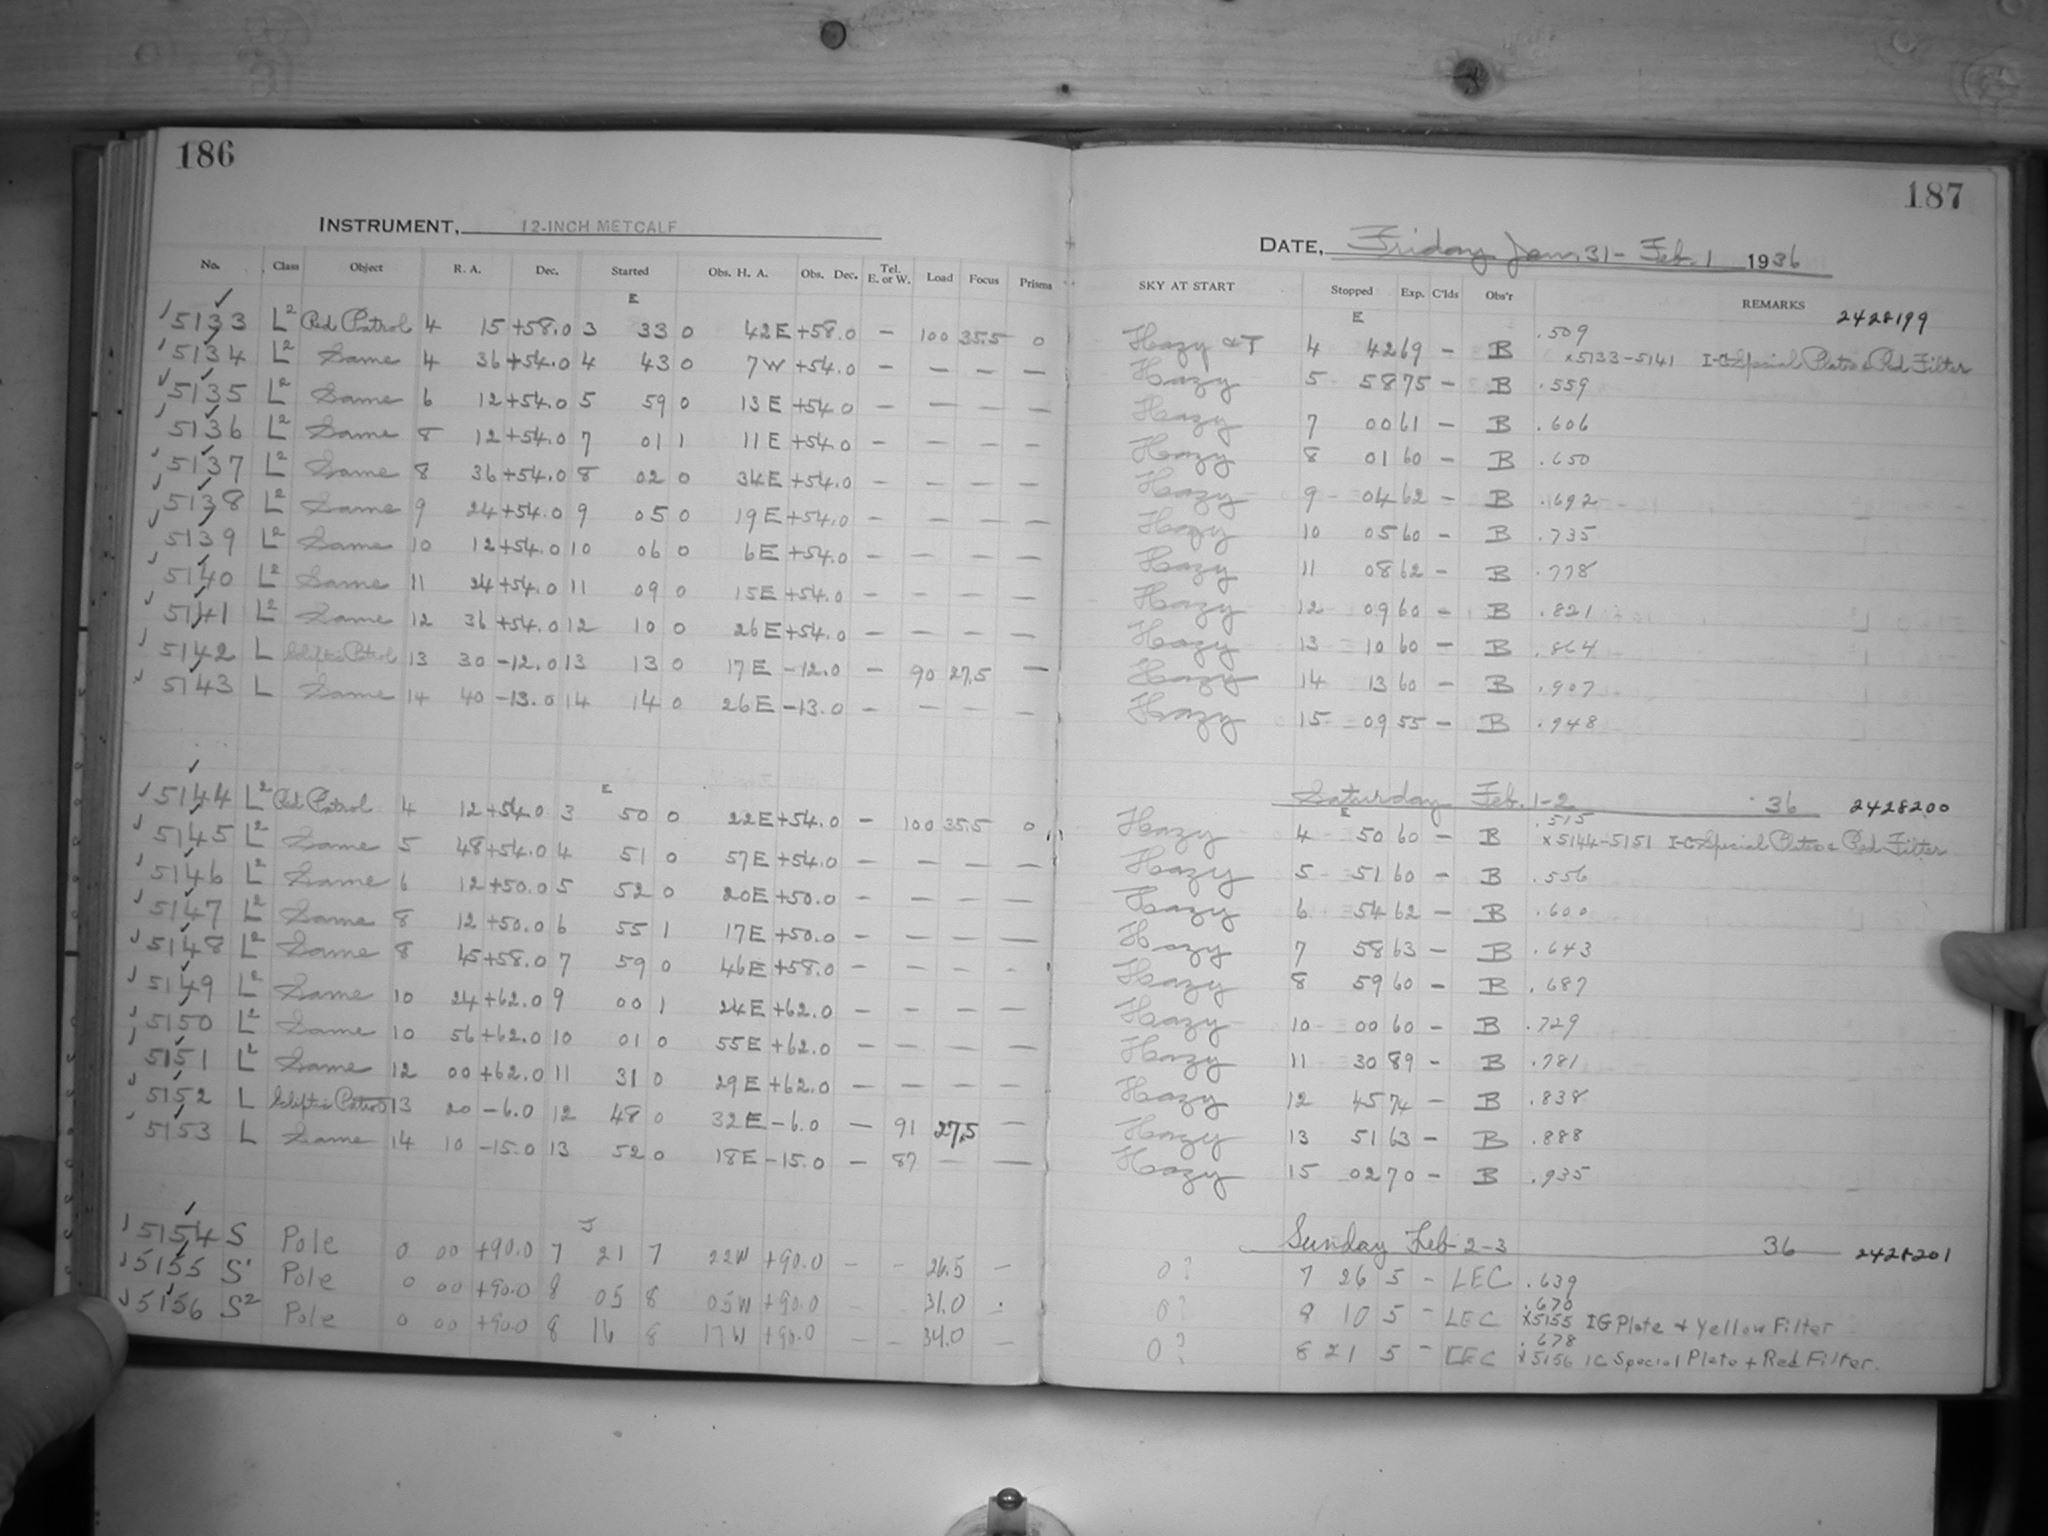 186
INSTRUMENT, 12-INCH METCALF
No. Class Object R. A. Dec. Started Obs. H. A. Obs. Dec. Tel. E. or W. Load Focus Prisms
E
✓5133 L² Red Patrol 4 15 +58.0 3 33 0 42E +58.0 – 100 35.5 0
✓5134 L² Same 4 36 +54.0 4 43 0 7W +54.0 – – – –
✓5135 L² Same 6 12 +54.0 5 59 0 13E +54.0 – – – –
✓5136 L² Same 8 12 +54.0 7 01 1 11E +54.0 – – – –
✓5137 L² Same 8 36 +54.0 8 02 0 34E +54.0 – – – –
✓5138 L² Same 9 24 +54.0 9 05 0 19E +54.0 – – – –
✓5139 L² Same 10 12 +54.0 10 06 0 6E +54.0 – – – –
✓5140 L² Same 11 24 +54.0 11 09 0 15E +54.0 – – – –
✓5141 L² Same 12 36 +54.0 12 10 0 26E +54.0 – – – –
✓5142 L Ecliptic Patrol 13 30 -12.0 13 13 0 17E -12.0 – 90 27.5 –
✓5143 L Same 14 40 -13.0 14 14 0 26E -13.0 – – – –
E
✓5144 L² Red Patrol 4 12 +54.0 3 50 0 22E +54.0 – 100 35.5 0
✓5145 L² Same 5 48 +54.0 4 51 0 57E +54.0 – – – –
✓5146 L² Same 6 12 +50.0 5 52 0 20E +50.0 – – – –
✓5147 L² Same 8 12 +50.0 6 55 1 17E +50.0 – – – –
✓5148 L² Same 8 45 +58.0 7 59 0 46E +58.0 – – – –
✓5149 L² Same 10 24 +62.0 9 00 1 24E +62.0 – – – –
✓5150 L² Same 10 56 +62.0 10 01 0 55E +62.0 – – – –
✓5151 L² Same 12 00 +62.0 11 31 0 29E +62.0 – – – –
✓5152 L Ecliptic Patrol 13 20 -6.0 12 48 0 32E -6.0 – 91 27.5 –
✓5153 L Same 14 10 -15.0 13 52 0 18E -15.0 – 87 – –
✓5154 S Pole 0 00 +90.0 7 21 7 22W +90.0 – – 26.5 –
✓5155 S' Pole 0 00 +90.0 8 05 8 05W +90.0 – 31.0 –
✓5156 S² Pole 0 00 +90.0 8 16 8 17W +90.0 – – 34.0 –
187
DATE, Friday Jan. 31 – Feb. 1 1936
SKY AT START Stopped Exp. C'lds Obs'r REMARKS
E 2428199
Hazy & T 4 42 69 – B .509 x5133-5141 I-C Special Plates & Red Filter
Hazy 5 58 75 – B .559
Hazy 7 00 61 – B .606
Hazy 8 01 60 – B .650
Hazy 9 04 62 – B .692
Hazy 10 05 60 – B .735
Hazy 11 08 62 – B .778
Hazy 12 09 60 – B .821
Hazy 13 10 60 – B .864
Hazy 14 13 60 – B .907
Hazy 15 09 55 – B .948
Saturday Feb. 1-2 36 2428200
E
Hazy 4 50 60 – B .515 x5144-5151 I-C Special Plates & Red Filter
Hazy 5 51 60 – B .556
Hazy 6 54 62 – B .600
Hazy 7 58 63 – B .643
Hazy 8 59 60 – B .687
Hazy 10 00 60 – B .729
Hazy 11 30 89 – B .781
Hazy 12 45 74 – B .838
Hazy 13 51 63 – B .888
Hazy 15 02 70 – B .935
Sunday Feb 2-3 36 2428201
0? 7 26 5 – LEC .639
0? 8 10 5 – LEC .670 x5155 IG Plate + Yellow Filter
0? 8 21 5 – LEC .678 x5156 IC Special Plate + Red Filter.